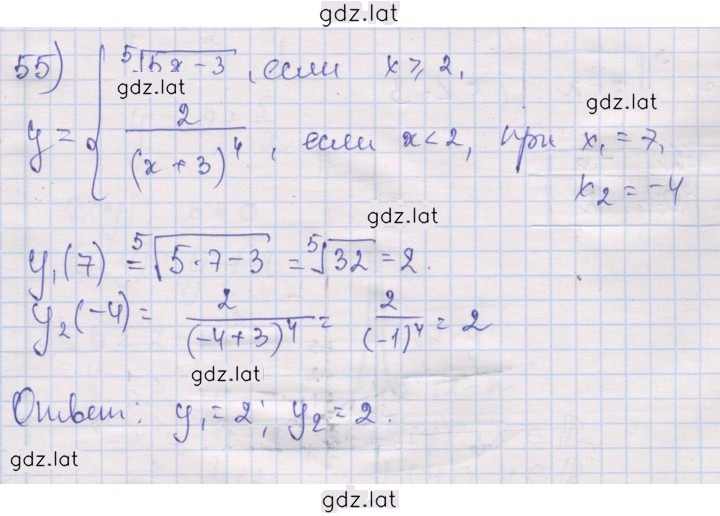 gdz.lat
55) y = { ⁵√(5x − 3), если x ⩾ 2,
gdz.lat
2/(x + 3)⁴, если x < 2, при x₁ = 7,
gdz.lat
x₂ = −4
gdz.lat
y₁(7) = ⁵√(5·7−3) = ⁵√32 = 2.
y₂(−4) = 2/(−4+3)⁴ = 2/(−1)⁴ = 2
gdz.lat
Ответ: y₁ = 2; y₂ = 2.
gdz.lat
gdz.lat